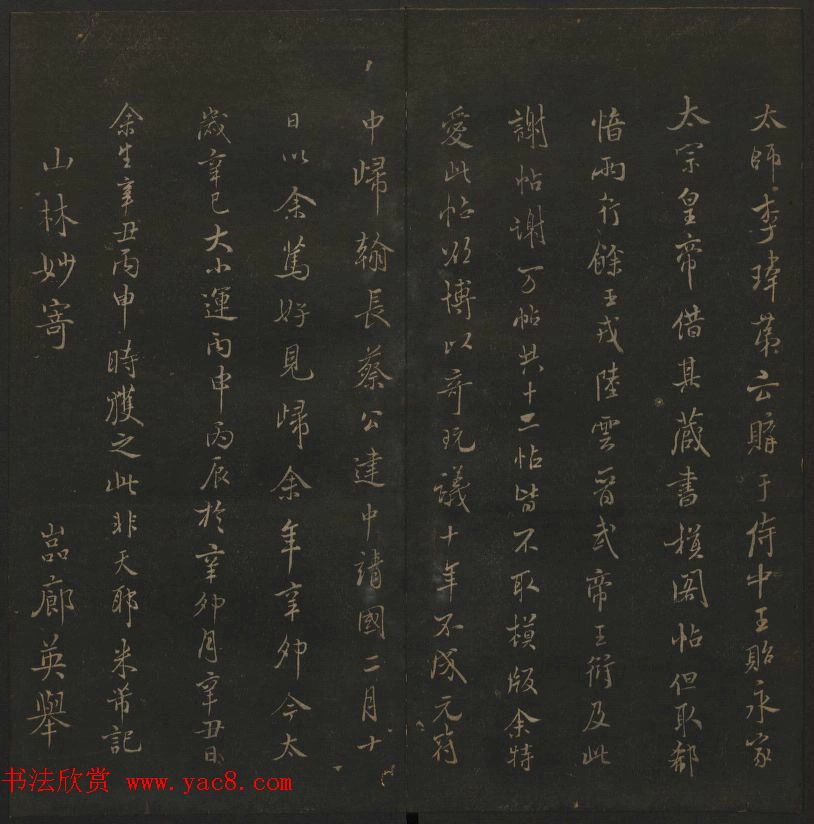 太師李瑋第云購于侍中王貽永家
太宗皇帝借其藏書模閣帖但取郗
愔兩行餘王戎陸雲晉武帝王衍及此
謝帖謝万帖共十二帖皆不取模版余特
愛此帖欲博以奇玩議十年不成元符
中歸翰長蔡公建中靖國二月十
日以余篤好見歸余年辛卯今太
歲辛巳大小運丙申丙辰於辛卯月辛丑日
余生辛丑丙申時獲之此非天耶米芾記
山林妙寄 嵒廊英舉
书法欣赏 www.yac8.com